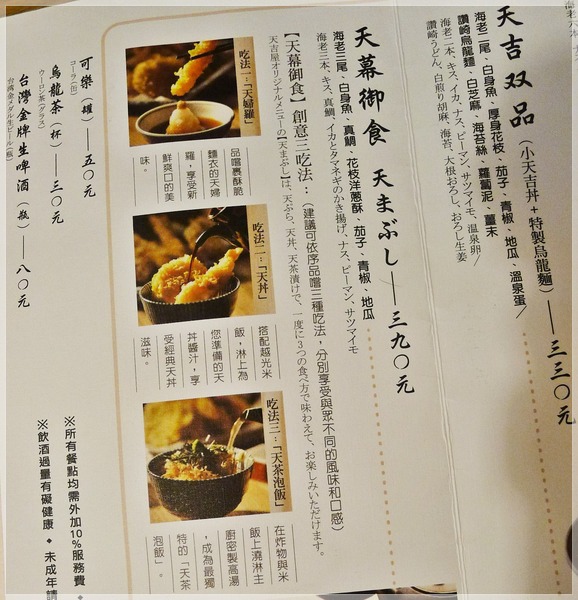 天吉双品（小天吉丼＋特製烏龍麵）——三三〇元
海老二尾、白身魚、厚身花枝、茄子、青椒、地瓜、溫泉蛋／
讚崎烏龍麵、白芝麻、海苔絲、蘿蔔泥、薑末
海老二本、キス、イカ、ナス、ピーマン、サツマイモ、温泉卵／
讚崎うどん、白煎り胡麻、海苔、大根おろし、おろし生姜
天幕御食 天まぶし——三九〇元
海老三尾、白身魚、真鯛、花枝洋蔥酥、茄子、青椒、地瓜
海老三本、キス、真鯛、イカとタマネギのかき揚げ、ナス、ピーマン、サツマイモ
【天幕御食】創意三吃法：（建議可依序品嚐三種吃法，分別享受與眾不同的風味和口感）
天吉屋オリジナルメニューの【天まぶし】は、天ぷら、天丼、天茶漬けで、一度に3つの食べ方で味わえて、お楽しみいただけます。
吃法一：「天婦羅」
品嚐裹酥脆
麵衣的天婦
羅，享受新
鮮爽口的美
味。
吃法二：「天丼」
搭配越光米
飯，淋上為
您準備的天
丼醬汁，享
受經典天丼
滋味。
吃法三：「天茶泡飯」
在炸物與米
飯上澆淋主
廚密製高湯
，成為最獨
特的「天茶
泡飯」。
可樂（罐）——五〇元
コーラ（缶）
烏龍茶（杯）——三〇元
ウーロン茶（グラス）
台灣金牌生啤酒（瓶）——八〇元
台湾金メダル生ビール（瓶）
※所有餐點均需外加10%服務費。
※飲酒過量有礙健康◆未成年請